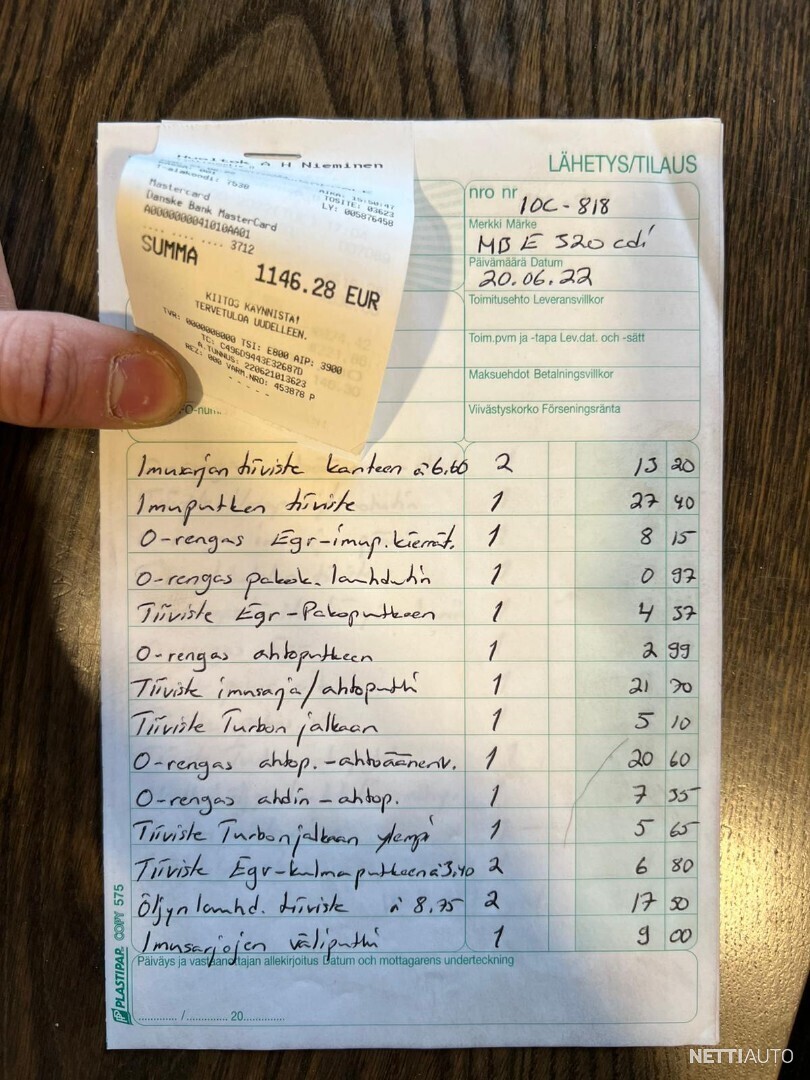 Huoltok A H Nieminen
AIKA: 15:50:47
7538
TOSITE: 03623
LY: 005876458
Mastercard
Danske Bank MasterCard
A0000000041010AA01
.... .... .... 3712
SUMMA 1146.28 EUR
KIITOS KÄYNNISTÄ!
TERVETULOA UUDELLEEN.
TVR: 0000008000 TSI: E800 AIP: 3900
TC: C496D9443E32687D
A.TUNNUS: 220621013623
REZ: 000 VARM.NRO: 453878 P
- - - - -
LÄHETYS/TILAUS
nro nr 10C-818
Merkki Märke
MB E 320 cdi
Päivämäärä Datum
20.06.22
Toimitusehto Leveransvillkor
Toim.pvm ja -tapa Lev.dat. och -sätt
Maksuehdot Betalningsvillkor
Viivästyskorko Förseningsränta
Imusarjan tiiviste kanteen á 6,60 2 13 20
Imuputken tiiviste 1 27 40
O-rengas Egr-imup.kierrät. 1 8 15
O-rengas pakok. lauhdutin 1 0 97
Tiiviste Egr-Pakoputkeen 1 4 37
O-rengas ahtoputkeen 1 2 99
Tiiviste imusarja/ahtoputki 1 21 70
Tiiviste Turbon jalkaan 1 5 10
O-rengas ahtop.-ahtoäänenv. 1 20 60
O-rengas ahdin-ahtop. 1 7 35
Tiiviste Turbon jalkaan ylempi 1 5 65
Tiiviste Egr-kulmaputkeen á 3,40 2 6 80
Öljynlauhd. tiiviste á 8,75 2 17 50
Imusarjojen väliputki 1 9 00
Päiväys ja vastaanottajan allekirjoitus Datum och mottagarens underteckning
............ /............. 20.............
PLASTIPAP. COPY 575
NETTIAUTO